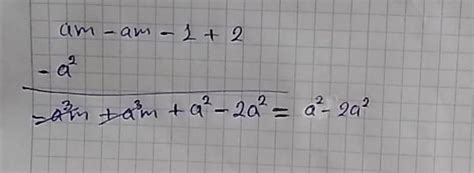 am - am - 1 + 2
- a²
- a³m + a³m + a² - 2a² = a² - 2a²